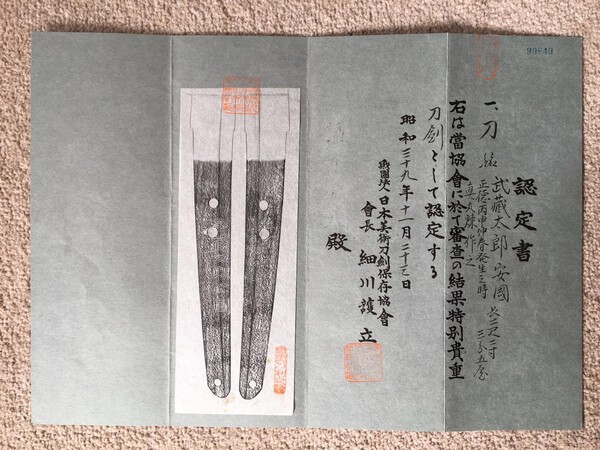 99849
認定書
一、刀 銘 武蔵太郎安國 長二尺二寸三分五厘
正徳丙申仲春発生之時
真十五枚甲伏作之
右は當協會に於て審査の結果特別貴重
刀劍として認定する
昭和三十九年十一月二十三日
財團法人日本美術刀劍保存協會
會長 細川護立
殿